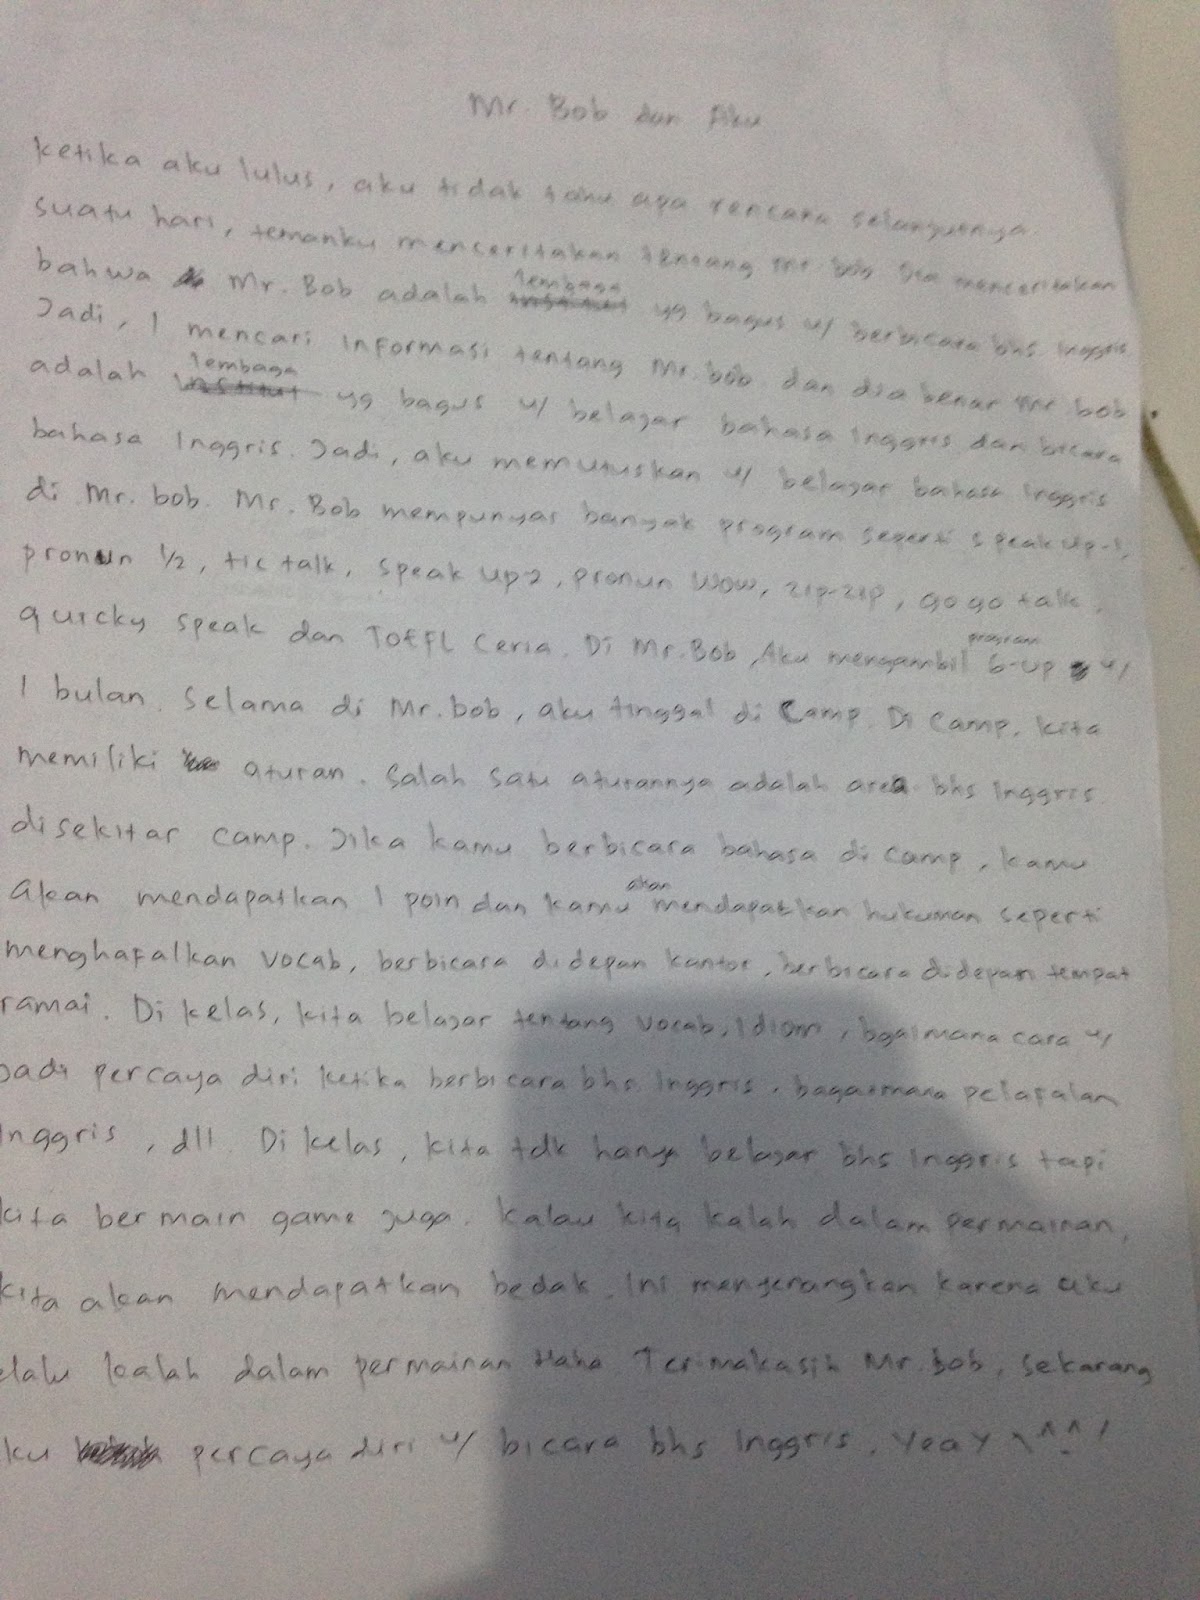 Mr. Bob dan Aku
ketika aku lulus, aku tidak tahu apa rencana selanjutnya.
suatu hari, temanku menceritakan tentang Mr. bob. Dia menceritakan
bahwa Mr. Bob adalah lembaga yg bagus u/ berbicara bhs Inggris
Jadi, I mencari informasi tentang Mr. bob. dan dia benar Mr. bob.
adalah lembaga yg bagus u/ belajar bahasa Inggris dan bicara
bahasa Inggris. Jadi, aku memutuskan u/ belajar bahasa Inggris
di Mr. bob. Mr. Bob mempunyai banyak program seperti speak Up-1,
pronun 1/2, tic talk, speak up-2, pronun Wow, zip-zip, go go talk,
quicky speak dan TOEFL Ceria. Di Mr. Bob, Aku mengambil program 6-up u/
1 bulan. Selama di Mr. bob, aku tinggal di Camp. Di Camp, kita
memiliki aturan. Salah satu aturannya adalah area bhs Inggris
disekitar camp. Jika kamu berbicara bahasa di camp, kamu
akan mendapatkan 1 poin dan kamu akan mendapatkan hukuman seperti
menghafalkan vocab, berbicara didepan kantor, berbicara didepan tempat
ramai. Di kelas, kita belajar tentang vocab, Idiom, bgaimana cara u/
jadi percaya diri ketika berbicara bhs. Inggris. bagaimana pelafalan
Inggris, dll. Di kelas, kita tdk hanya belajar bhs Inggris tapi
kita bermain game juga. Kalau kita kalah dalam permainan,
kita akan mendapatkan bedak. Ini menyenangkan karena aku
elalu kalah dalam permainan Haha Terimakasih Mr. bob, sekarang
ku percaya diri u/ bicara bhs Inggris. Yeay \^_^/